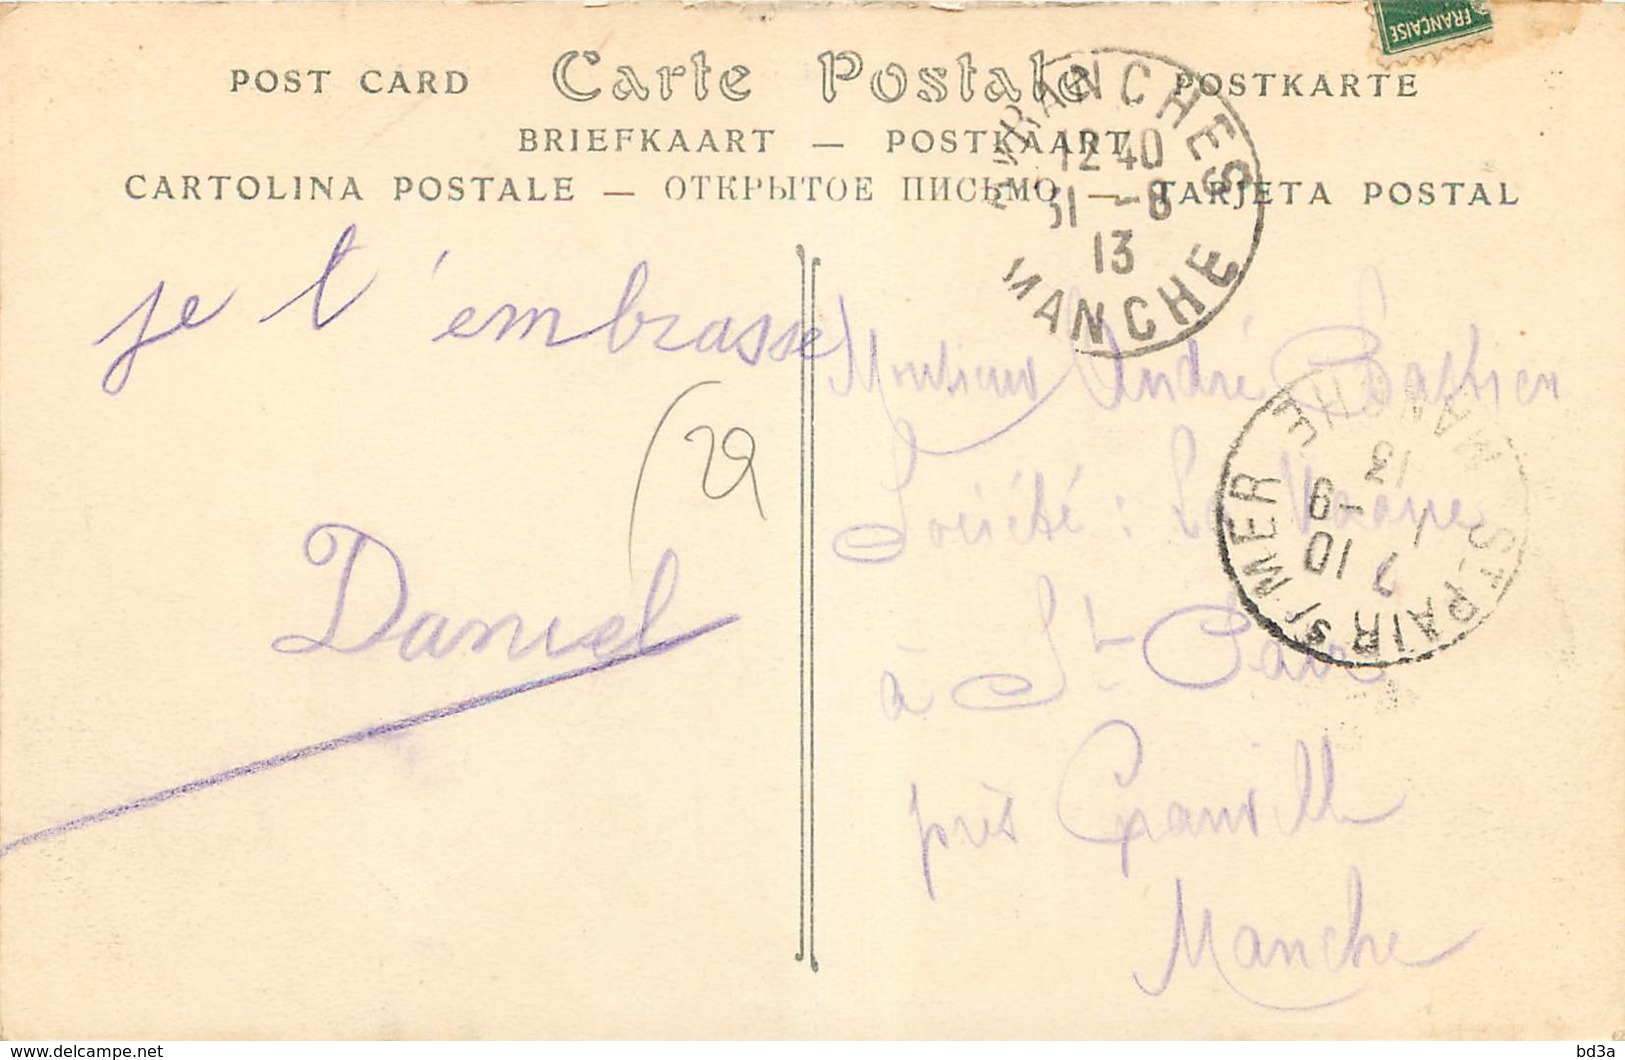 FRANÇAISE
POST CARD Carte Postale POSTKARTE
BRIEFKAART — POSTKAART
CARTOLINA POSTALE — ОТКРЫТОЕ ПИСЬМО — TARJETA POSTAL
AVRANCHES
12 40
31 - 8
13
MANCHE
je t'embrasse
Daniel
29
Monsieur André
Société : La
à St Pair
près Granville
Manche
ST-PAIR S/ MER
7 10
1 - 9
13
MANCHE
delcampe.net
bd3a